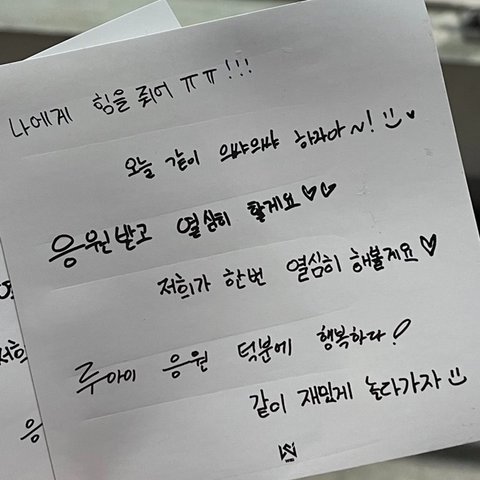 나에게 힘을 줘어 ㅠㅠ!!!
오늘 같이 으쌰으쌰 하자아~!
응원받고 열심히 할게요♡♡
저희가 한번 열심히 해볼게요♡
루아이 응원 덕분에 행복하다!
같이 재밌게 놀다가자